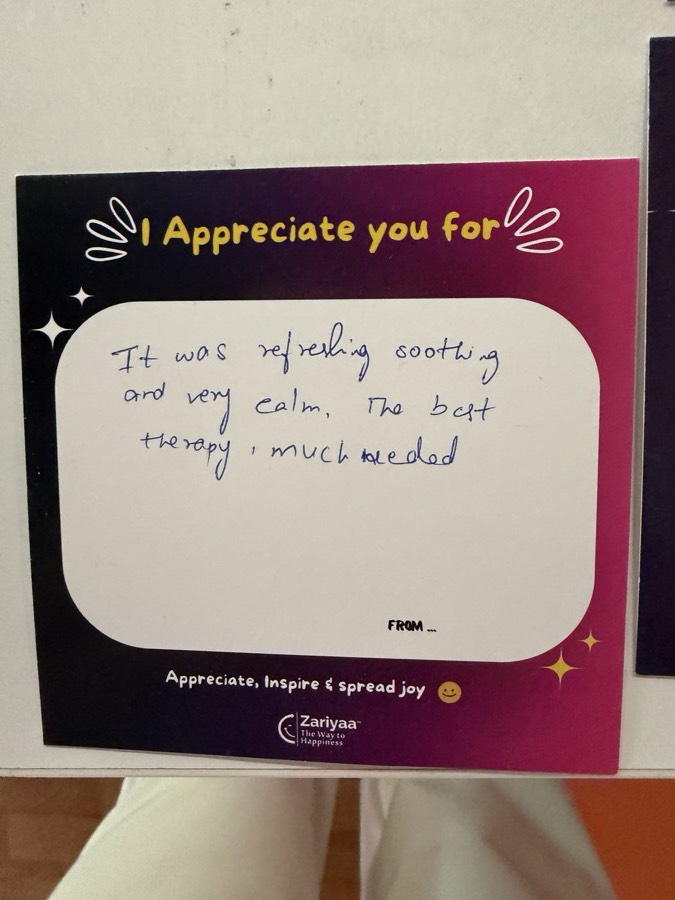 I Appreciate you for
It was refreshing soothing
and very calm. The best
therapy, much needed
FROM ...
Appreciate, Inspire & spread joy
Zariyaa™
The Way to
Happiness